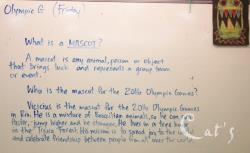 Olympic G (Friday)
What is a MASCOT?
A mascot is any animal, person or object
that brings luck and represents a group team
or event.
Who is the mascot for the 2016 Olympic Games?
Vicicius is the mascot for the 2016 Olympic Games
in Rio. He is a mixture of Brazilian animals, so he can run
faster, jump higher and be stronger. He lives in a tree house
in the Tijuca Forest. His mission is to spread joy to the world
and celebrate friendships between people from all over the world.
Cat's